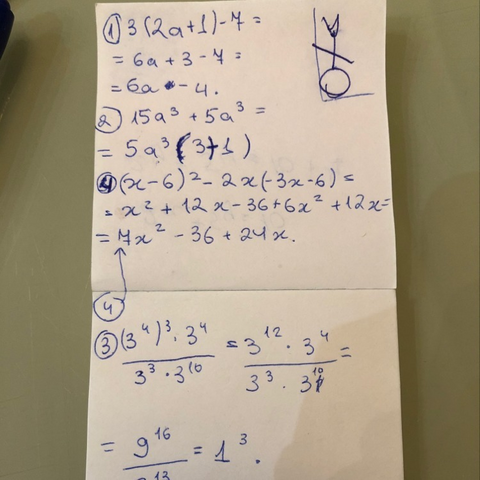 ① 3(2a+1)-7=
= 6a + 3 - 7 =
= 6a - 4.
② 15a³ + 5a³ =
= 5a³(3+1)
④ (x-6)² - 2x(-3x-6) =
= x² + 12x - 36 + 6x² + 12x =
= 7x² - 36 + 24x.
④
③ (3⁴)³ · 3⁴ / 3³ · 3¹⁰ = 3¹² · 3⁴ / 3³ · 3¹⁰ =
= 9¹⁶ / = 1³.